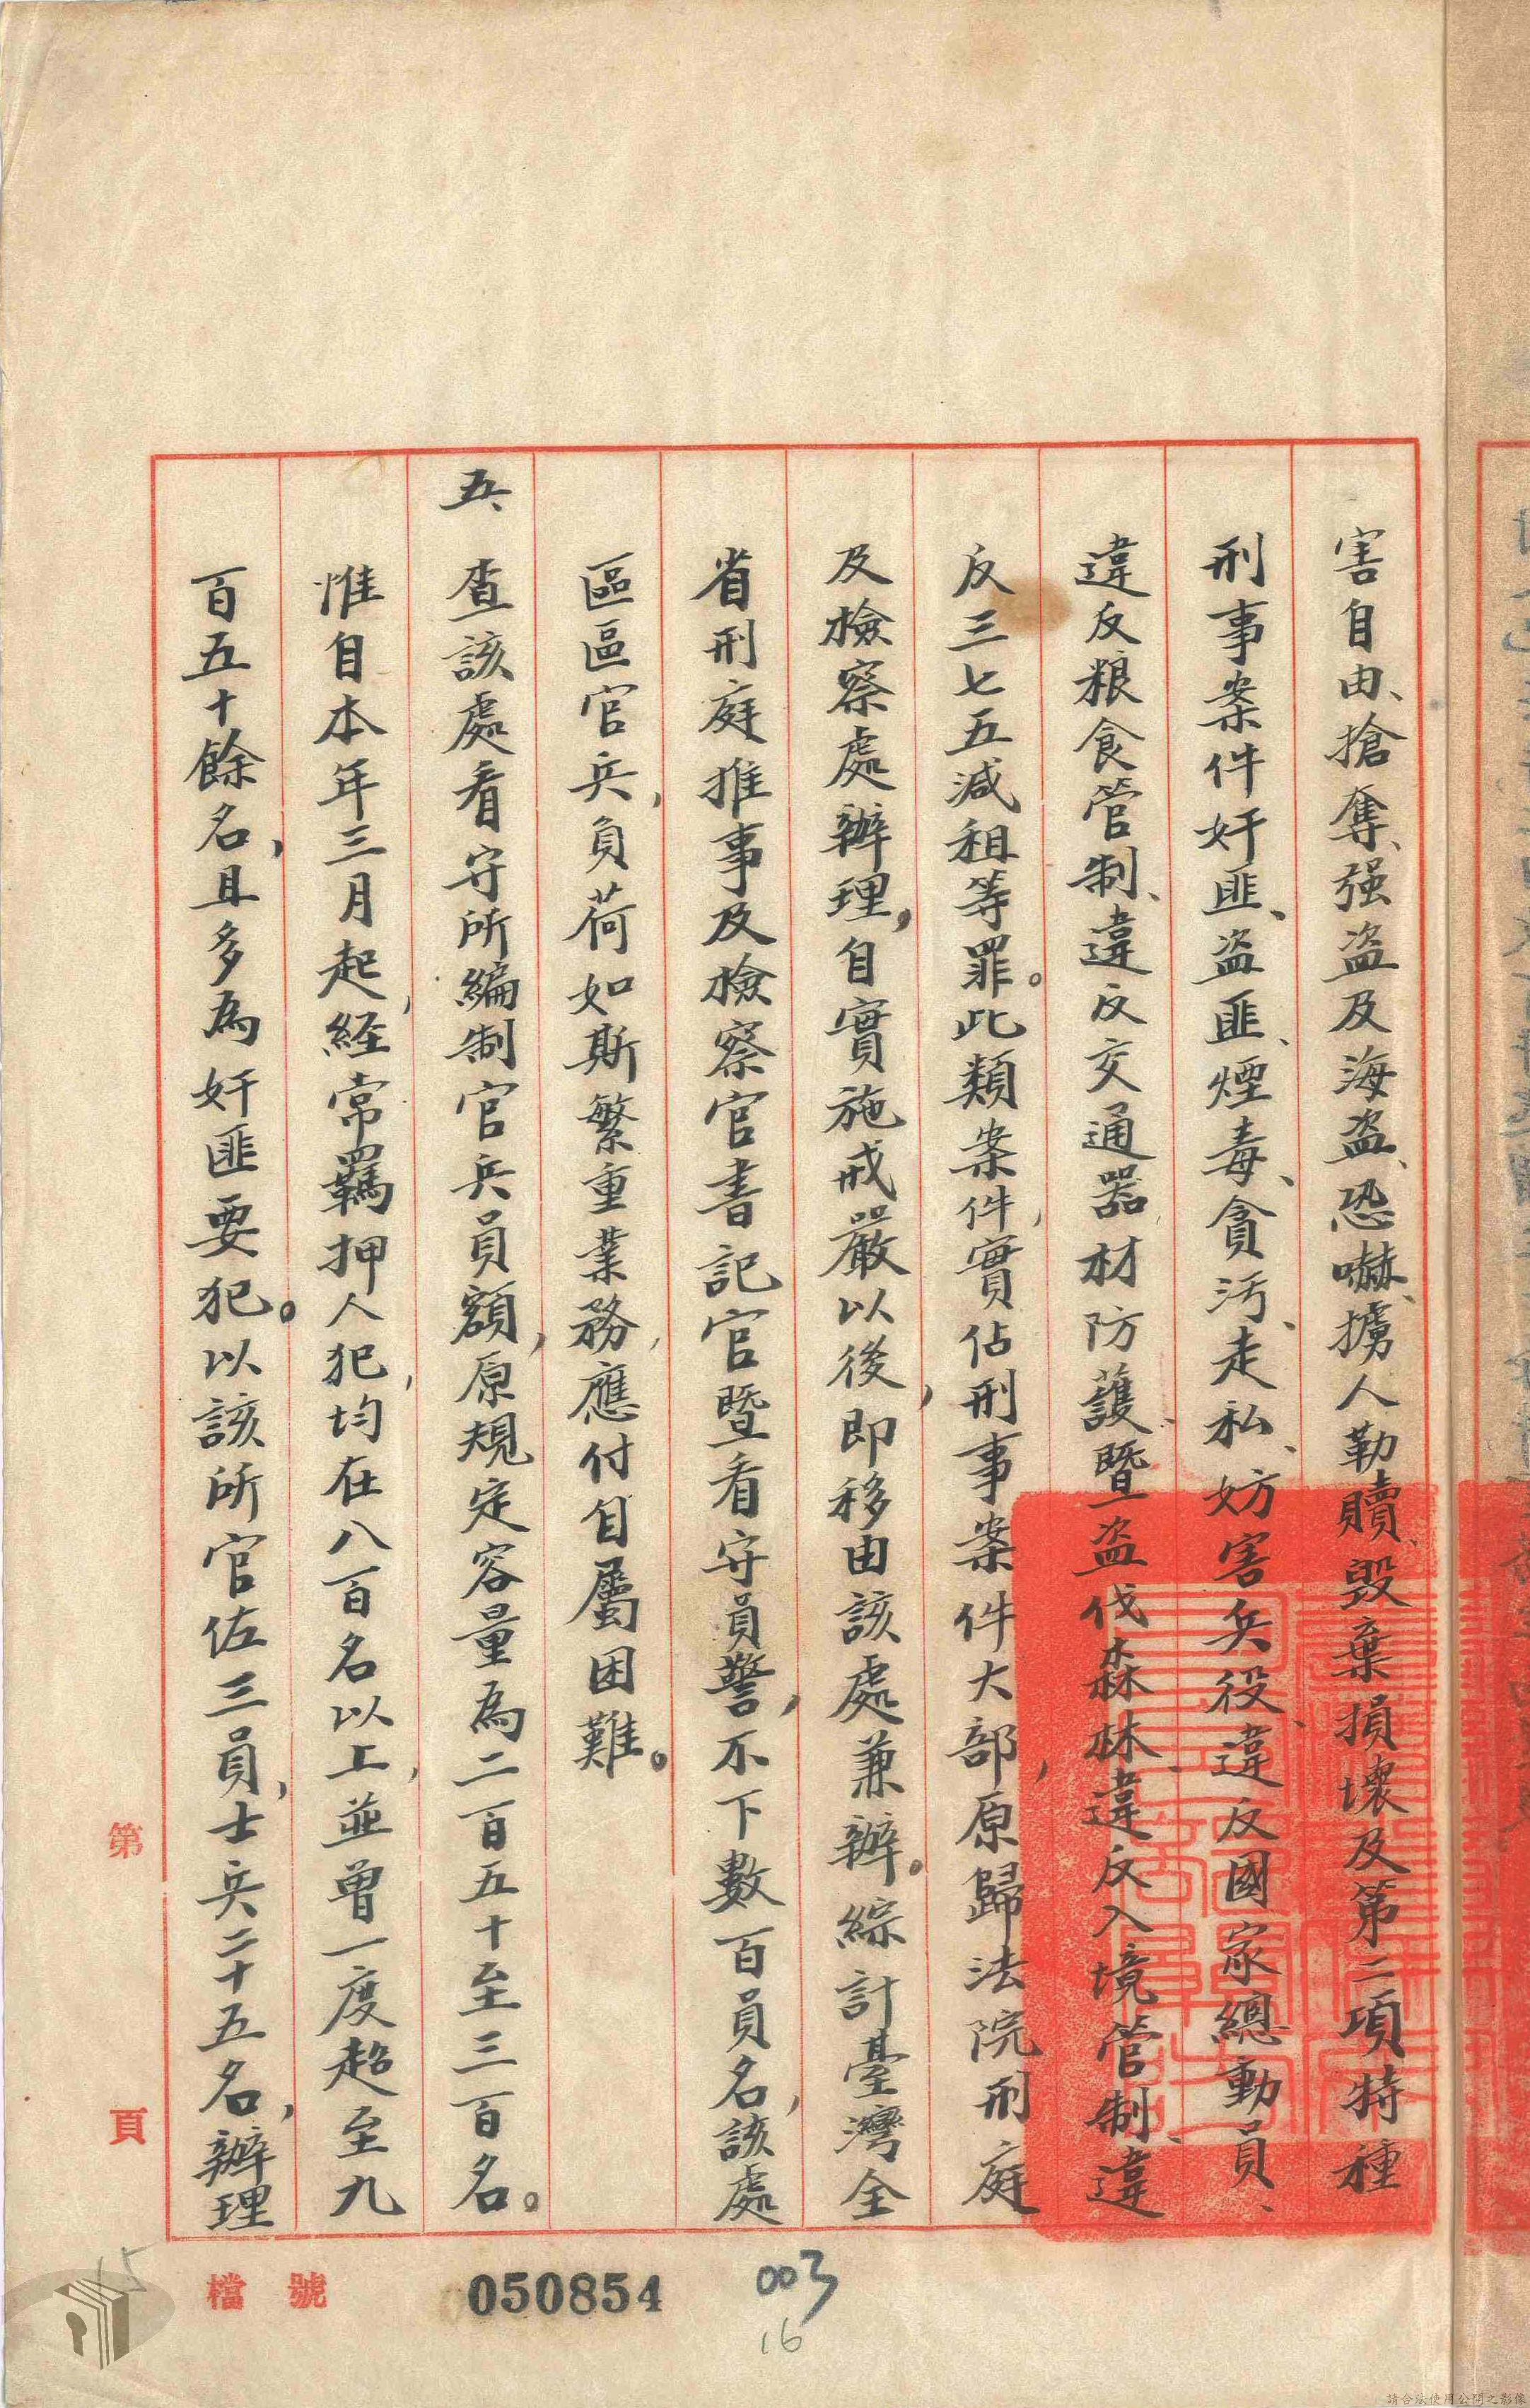 害自由、搶奪、强盜及海盜、恐嚇、擄人勒贖、毀棄損壞及第二項特種
刑事案件奸匪、盜匪、煙毒、貪污、走私、妨害兵役、違反國家總動員、
違反粮食管制、違反交通器材防護、暨盜伐森林、違反入境管制、違
反三七五減租等罪。此類案件，實佔刑事案件大部，原歸法院刑庭
及檢察處辦理，自實施戒嚴以後，即移由該處兼辦。綜計臺灣全
省刑庭推事及檢察官書記官暨看守員警，不下數百員名，該處
區區官兵，負荷如斯繁重業務，應付自屬困難。
五、查該處看守所編制官兵員額，原規定容量為二百五十至三百名。
惟自本年三月起，經常羈押人犯，均在八百名以上，並曾一度超至九
百五十餘名，且多為奸匪要犯。以該所官佐三員，士兵二十五名，辦理
第 頁
檔號
050854
003
16
15
請合法使用公開之影像